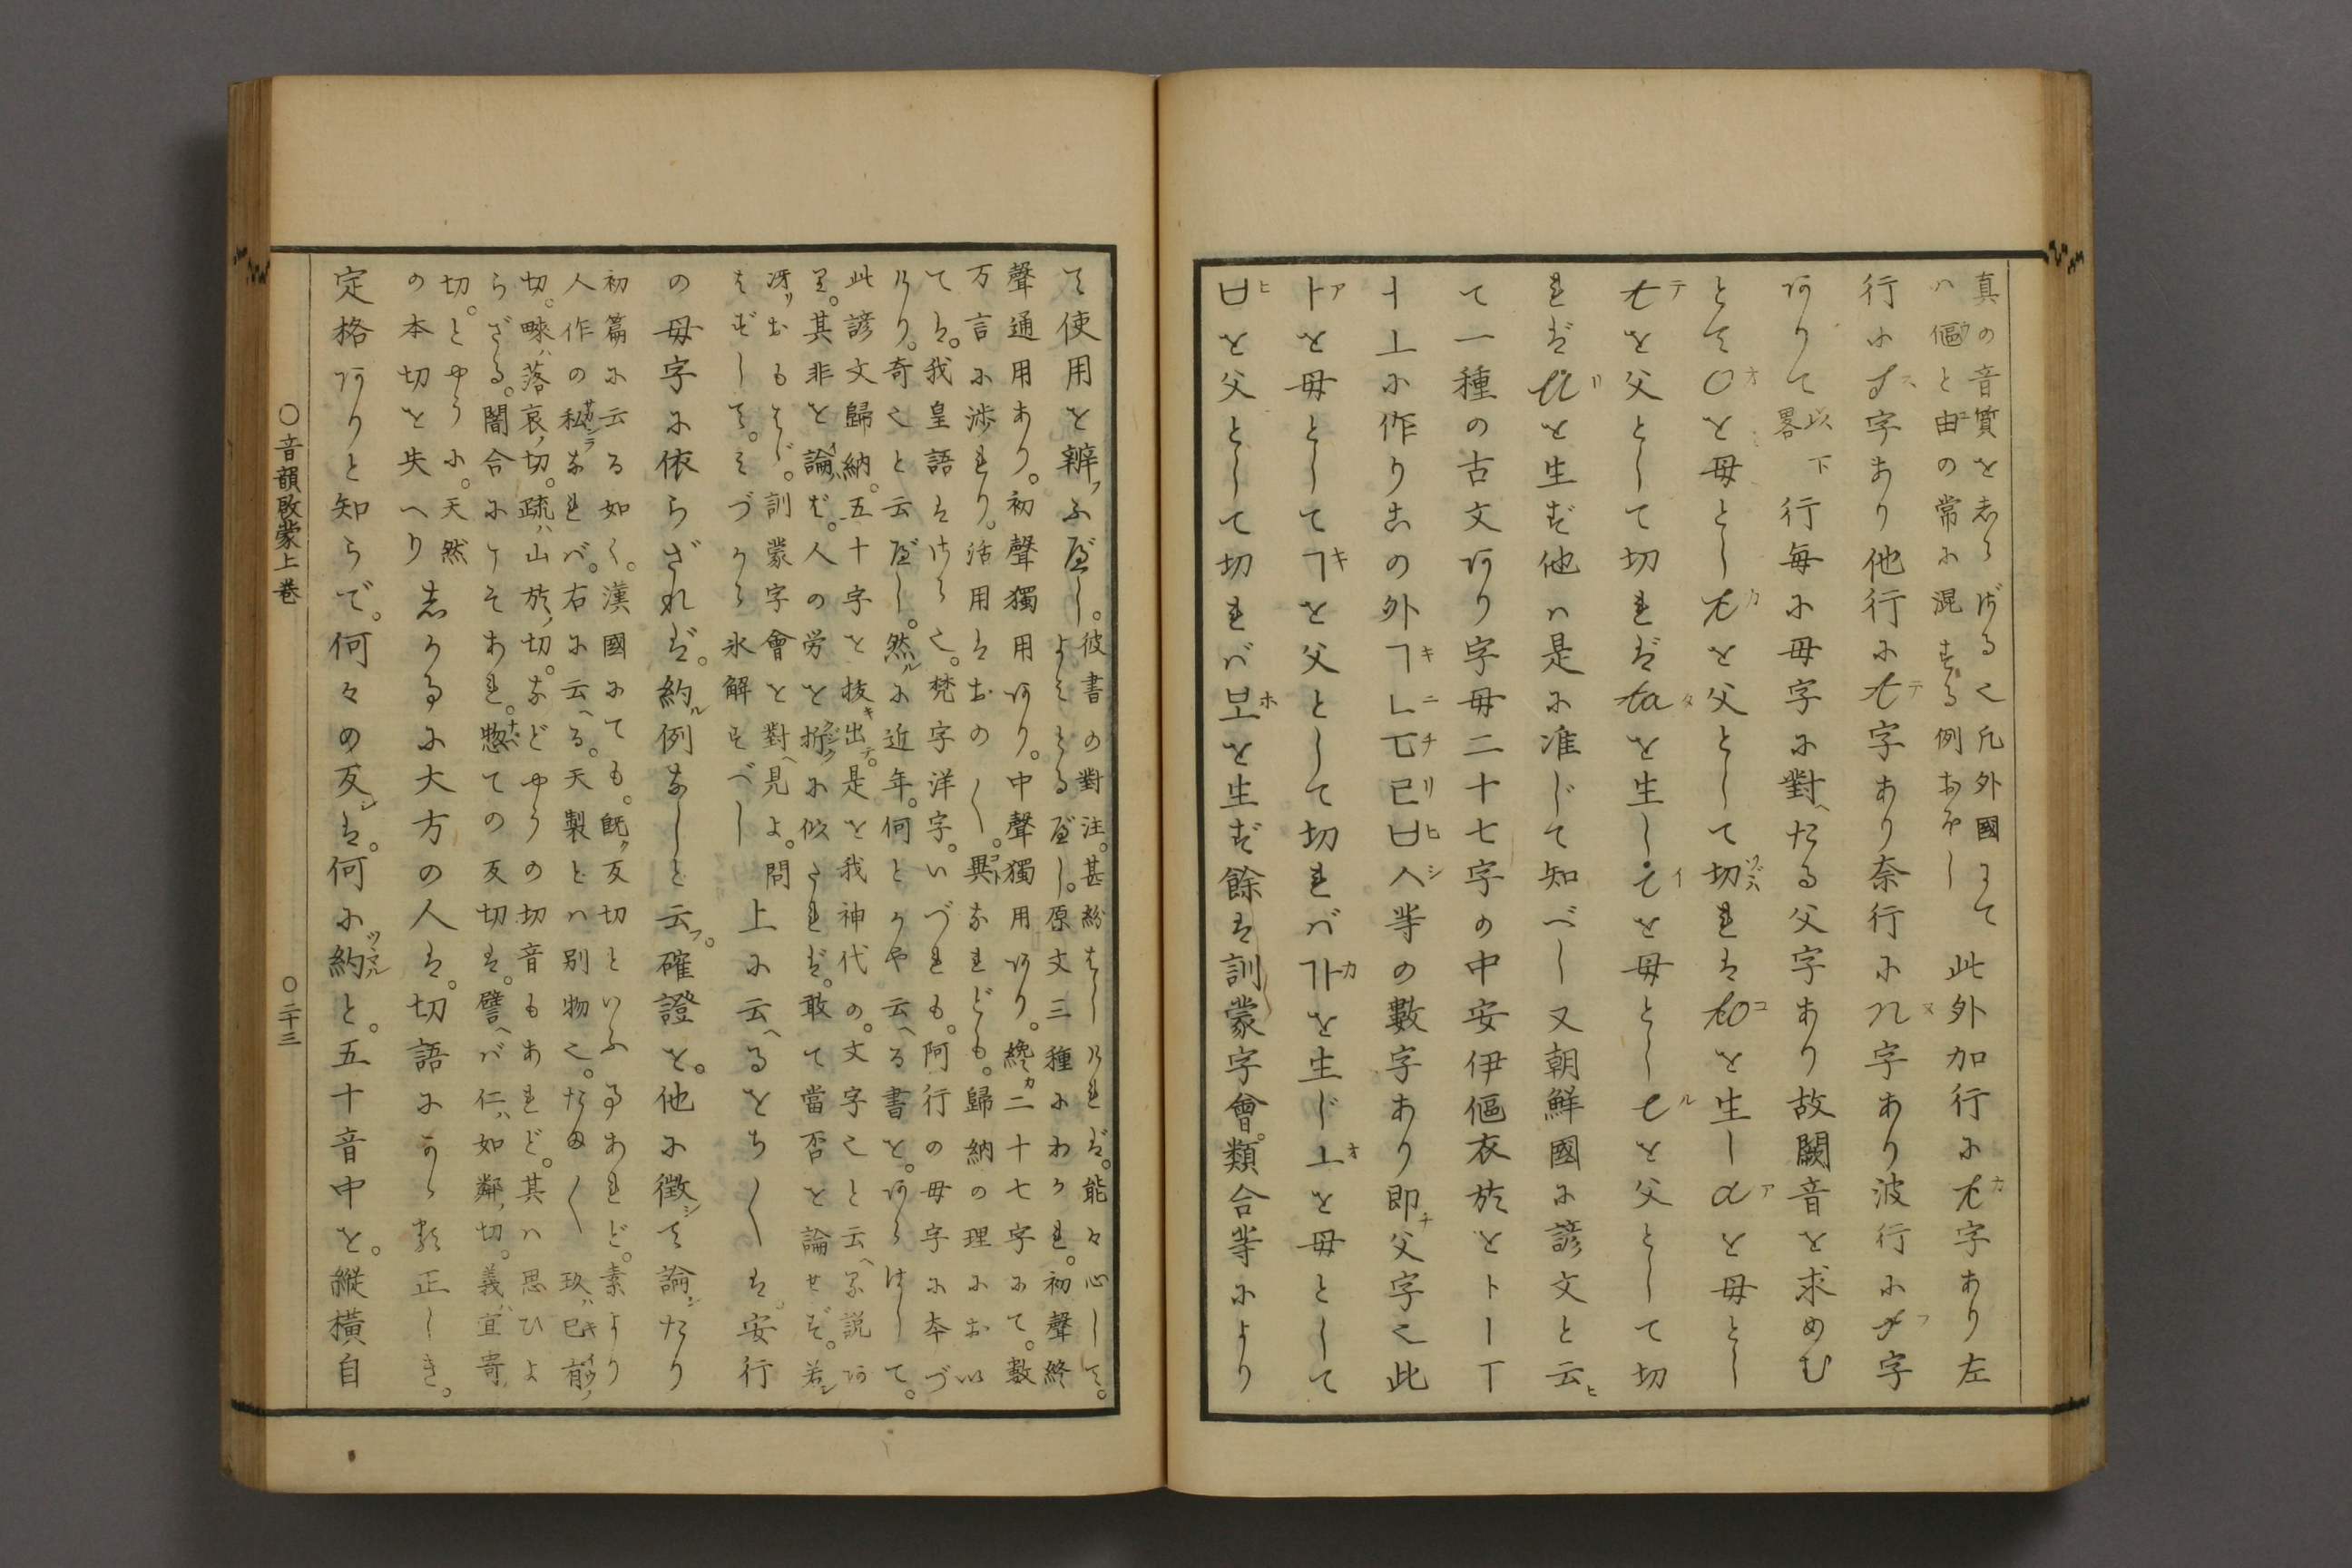 真の音質を志らざる也凡外國にて
ハ傴と由の常に混ずる例おほし
此外加行にk字あり左
行にs字あり他行にt字あり奈行にn字あり波行にf字
ありて以下畧行毎に母字に對へたる父字あり故闕音を求めむ
とてoを母としkを父として切ればkoを生しaを母とし
tを父として切れバtaを生しiを母としlを父として切
れバliを生ず他ハ是に准じて知べし又朝鮮國に諺文と云
て一種の古文あり字母二十七字の中安伊傴衣於をㅏㅣㅜ
ㅓㅗに作りその外ㄱㄴㄷㄹㅂㅅ等の數字あり即父字也此
ㅏを母としてㄱを父として切れバ가を生じㅗを母として
ㅂを父として切れバ보を生ず餘は訓蒙字會類合等により
て使用を辨ふべし。
彼書の對注。甚紛はしければ。能々心して。
よみとるべし。原文三種にわかれ。初聲終
聲通用あり。初聲獨用あり。中聲獨用あり。纔二十七字にて。數
万言に渉れり。活用はおの〱。異なれども。歸納の理におい
ては。我皇語はさら也。梵字洋字。いづれも。阿行の母字に本づ
けり。奇也と云べし。然に近年。何とかや云へる書を。あらはして。
此諺文歸納。五十字を抜出て。是を我神代の。文字也と云へる説あ
り。其非を論ば。人の労を折に似たれば。敢て當否を論せず。若
冴おもはゞ。訓蒙字會を對へ見よ。問
はずして。みづから氷解すべし
上に云へるごとくは。安行
の母字に依らざれば。約例なしと云。確證を。他に徴て論じたり
初篇に云る如く。漢國にても。既反切といふ事あれど。素より
人作の私なれバ。右に云へる。天製とハ別物也。たまたま玖ハ已有ノ
切。睞ハ落哀ノ切。疏ハ山於ノ切。などやうの切音もあれど。其ハ思ひよ
らざる。闇合にこそあれ。惣ての反切は。譬へバ仁ハ如鄰ノ切。義ハ宜寄ノ
切。とやうに。天然
の本切を失へり
志かるに大方の人は。切語にから韵正しき。
定格ありと知らで。何々の反は。何に約と。五十音中を。縱横自
〇音韻啟蒙上巻
〇二十三